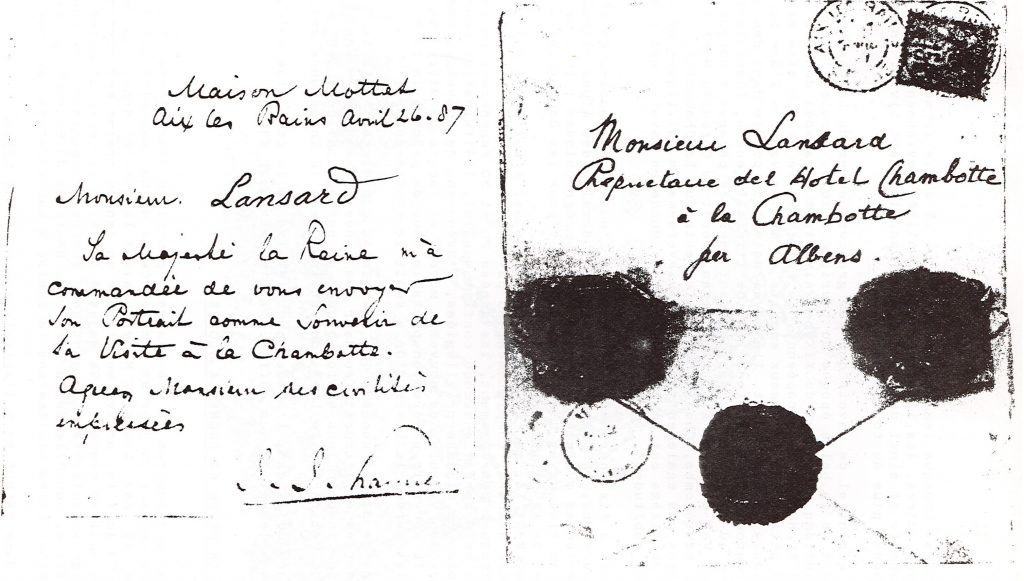 Maison Mottet
Aix les Bains Avril 26. 87
Monsieur. Lansard
Sa Majesté la Reine m'a
commandée de vous envoyer
son Portrait comme Souvenir de
sa Visite à la Chambotte.
Agréez Monsieur mes civilités
empressées
Monsieur Lansard
Propriétaire del Hotel Chambotte
à la Chambotte
per Albens.
AIX LES BAINS